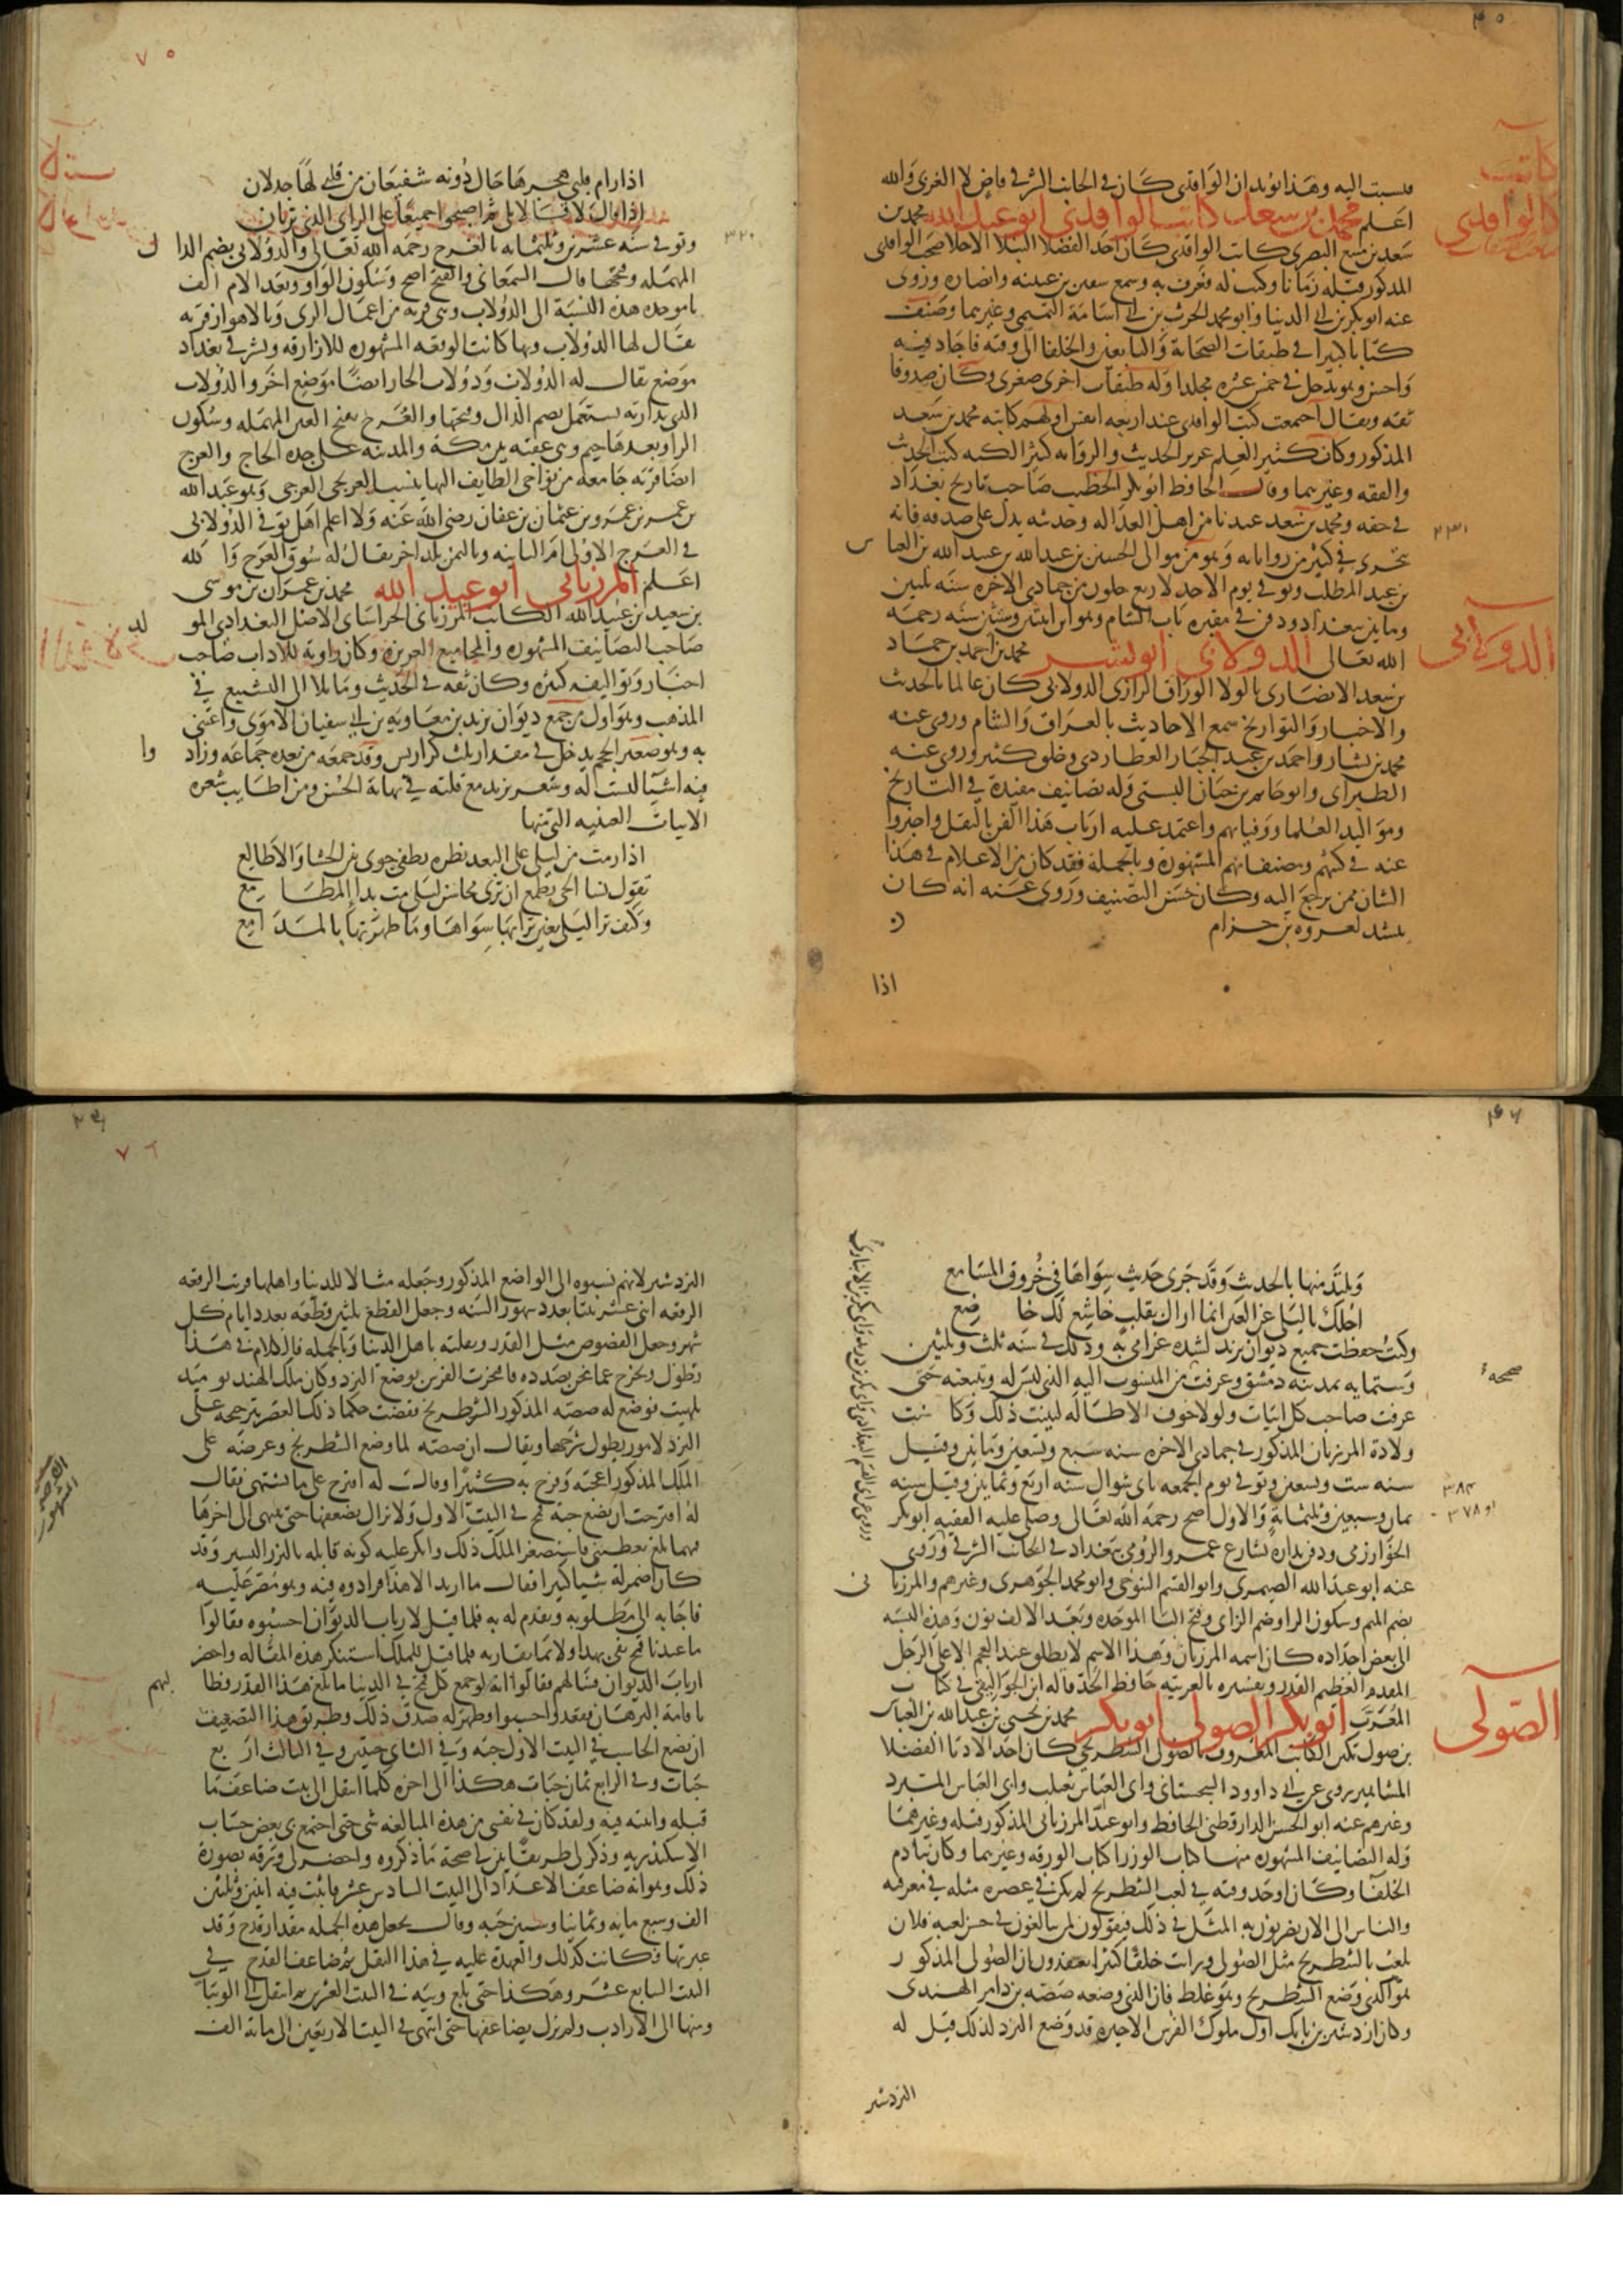 فنسبت اليه وهذا يؤيد ان الواقدي كان في الجانب الشرقي قاض لا الغربي والله
اعلم محمد بن سعد كاتب الواقدي ابو عبد الله محمد بن
سعد بن منيع البصري كاتب الواقدي كان احد الفضلا النبلا الاجلا صحب الواقدي
المذكور قبله زمانا وكتب له فعرف به وسمع سفين بن عيينه وانضاره وروى
عنه ابو بكر بن ابي الدنيا وابو محمد الحرث بن ابي اسامة التميمي وغيرهما وصنف
كتابا كبيرا في طبقات الصحابة والتابعين والخلفا الى وقته فاجاد فيه
واحسن وهو يدخل في خمس عشره مجلدا وله طبقات اخرى صغرى وكان صدوقا
ثقه ويقال اجتمعت كتب الواقدي عند اربعه انفس اولهم كاتبه محمد بن سعد
المذكور وكان كثير العلم غزير الحديث والروايه كثير الكتبه كتب الحديث
والفقه وغيرهما وقال الحافظ ابو بكر الخطيب صاحب تاريخ بغداد
في حقه ومحمد بن سعد عندنا من اهل العداله وحديثه يدل على صدقه فانه
يتحرى في كثير من رواياته وهو من موالى الحسين بن عبد الله بن عبيد الله بن العباس
بن عبد المطلب وتوفي يوم الاحد لاربع خلون من جمادى الاخره سنه ثلثين
وماتين ببغداد ودفن في مقبره باب الشام وهو ابن اثنتين وستين سنه رحمه
الله تعالى الدولابي ابو بشر محمد بن احمد بن حماد
بن سعد الانصارى بالولا الوراق الرازى الدولابي كان عالما بالحديث
والاخبار والتواريخ سمع الاحاديث بالعراق والشام وروى عنه
محمد بن بشار واحمد بن عبد الجبار العطاردى وخلق كثير وروى عنه
الطبراى وابو حاتم بن حبان البستى وله تصانيف مفيدة في التاريخ
ومواليد العلما ووفياتهم واعتمد عليه ارباب هذا الفن بالنقل واخبروا
عنه في كتبهم ومصنفاتهم المشهورة وبالجملة فقد كان من الاعلام في هذا
الشان ممن يرجع اليه وكان حسن التصنيف وروى عنه انه كان
ينشد لعروه بن حزام
اذا
كاتب
الواقدي
٢٣٠
الدولابي
٧٥
اذا رام قلبي هجرها حال دونه شفيعان من قلبي لها جدلان
اذا قال لا قالا بلى ثم اصبحوا جميعا على الراى الذى تريان
وتوفي سنه عشرين وثلثمائه بالعرج رحمه الله تعالى والدولابى بضم الدال
٣٢٠
المهمله وفتحها قال السمعانى والفتح اصح وسكون الواو وبعد الام الف
با موحده هذه النسبة الى الدولاب وهى قريه من اعمال الرى وبالاهواز قريه
يقال لها الدولاب وبها كانت الوقعه المشهوره للازارقه وبشرقى بغداد
موضع يقال له الدولاب ودولاب الحار ايضا موضع اخر والدولاب
الذى يداربه يستعمل بضم الدال وفتحها والعرج بفتح العين المهمله وسكون
الرا وبعدها جيم وهى عقبه بين مكه والمدينه على جده الحاج والعرج
ايضا قريه جامعه من نواحى الطايف اليها ينسب العرجى وهو عبد الله
بن عمر بن عمرو بن عثمان بن عفان رضى الله عنه ولا اعلم اهل توفي الدولابى
في العرج الاولى ام الثانيه وباليمن بلد اخر يقال له سوق العرج والله
اعلم المرزبانى ابو عبد الله محمد بن عمران بن موسى
بن سعيد بن عبيد الله الكاتب المرزبانى الخراسانى الاصل البغدادى المولد
صاحب التصانيف المشهوره والمجاميع الغريبه وكان راويه للاداب صاحب
اخبار وتواليفه كثيره وكان ثقه في الحديث ومايلا الى التشيع في
المذهب وهو اول من جمع ديوان يزيد بن معاويه بن ابي سفيان الاموى واعتنى
به وهو صغير الحجم يدخل في مقدار ثلث كراريس وقد جمعه من بعده جماعه وزادوا
فيه اشيا ليست له وشعر يزيد مع قلته في نهاية الحسن ومن اطايب شعره
الابيات العينيه التى منها
اذا رمت من ليلى على البعد نظره لطفى جوى بين الحشا والاضالع
تقول نسا الحى تطمع ان ترى محاسن ليلى مت بدا المطامع
وكيف ترى ليلى بعين ترى بها سواها وما طهرتها بالمدامع
وتلتذ منها بالحديث وقد جرى حديث سواها في خروق المسامع
اجلك يا ليلى عن العين انما اراك بقلب خاشع لك خاضع
وكنت حفظت جميع ديوان يزيد لشده غرامى به وذلك في سنه ثلث وثلثين
وستمايه بمدينه دمشق وعرفت من المنسوب اليه الذى ليس له وتتبعته حتى
عرفت صاحب كل ابيات ولولا خوف الاطاله لبينت ذلك وكانت
ولادة المرزبان المذكور في جمادى الاخره سنه سبع وتسعين وماتين وقيل
سنه ست وتسعين وتوفي يوم الجمعه ثانى شوال سنه اربع وثمانين وقيل سنه
ثمان وسبعين وثلثمائة والاول اصح رحمه الله تعالى وصلى عليه الفقيه ابو بكر
الخوارزمى ودفن بداره بشارع عمرو الرومى ببغداد في الجانب الشرقى وروى
عنه ابو عبد الله الصيمرى وابو القسم التنوخى وابو محمد الجوهرى وغيرهم والمرزبانى
بضم الميم وسكون الرا وضم الزاى وفتح البا الموحده وبعد الالف نون وهذه النسبه
الى بعض اجداده كان اسمه المرزبان وهذا الاسم لا يطلق عند العجم الا على الرجل
المقدم العظيم القدر وتفسيره بالعربيه حافظ الحد قاله ابن الجواليقى في كتاب
المعرب ابو بكر الصولى ابو بكر محمد بن يحيى بن عبد الله بن العباس
بن صول تكين الكاتب المعروف بالصولى الشطرنجى كان احد الادبا الفضلا
المشاهير روى عن ابي داوود السجستانى وابى العباس ثعلب وابى العباس المبرد
وغيرهم عنه ابو الحسن الدارقطنى الحافظ وابو عبد المرزبانى المذكور قبله وغيرهما
وله التصانيف المشهوره منها كتاب الوزرا كتاب الورقه وغيرهما وكان ينادم
الخلفا وكان اوحد وقته في لعب الشطرنج لم يكن في عصره مثله في معرفته
والناس الى الان يضربون به المثل في ذلك فيقولون لمن يبالغون في حسن لعبه فلان
يلعب بالشطرنج مثل الصولى ورايت خلقا كثيرا يعتقدون ان الصولى المذكور
هو الذى وضع الشطرنج وهو غلط فان الذى وضعه صصه بن داهر الهندى
وكان اردشير بن بابك اول ملوك الفرس الاخيره قد وضع النرد لذلك قيل له
النردشير
صححه
٣٨٤
او ٣٧٨
الصولى
٧٦
النردشير لانهم نسبوه الى الواضع المذكور وجعله مثالا للدنيا واهلها فرتب الرقعه
الرقعه اثنى عشر بيتا بعدد شهور السنه وجعل القطع ثلثين قطعه بعدد ايام كل
شهر وجعل الفصوص مثل القدر وتقلبه باهل الدنيا وبالجمله فالكلام في هذا
يطول ويخرج عما نحن بصدده فافتخرت الفرس بوضع النرد وكان ملك الهند يوميذ
بلهيت فوضع له صصه المذكور الشطرنج فقضت حكما ذلك العصر بترجيحه على
النرد لامور يطول شرحها ويقال ان صصه لما وضع الشطرنج وعرضه على
الملك المذكور اعجبه وفرح به كثيرا وقال له اقترح على ما تشتهى فقال
له اقترحت ان تضع حبة قمح في البيت الاول ولا تزال تضعفها حتى تنتهى الى اخرها
فمهما بلغ تعطينى فاستصغر الملك ذلك وانكر عليه كونه قابله بالنزر اليسير وقد
كان اضمر له شيا كثيرا فقال ما اريد الا هذا فراده فيه وهو مصر عليه
فاجابه الى مطلوبه وتقدم له به فلما قيل لارباب الديوان احسبوه فقالوا
ما عندنا قمح يفى بهذا ولا بما يقاربه فلما قيل للملك استنكر هذه المقاله واحضر
ارباب الديوان فسالهم فقالوا انه لو جمع كل قمح في الدنيا ما بلغ هذا القدر فطالبهم
باقامة البرهان فقعدوا وحسبوا وظهر له صدق ذلك وطريق هذا التضعيف
ان يضع الحاسب في البيت الاول حبه وفي الثانى حبتين وفي الثالث اربع
حبات وفي الرابع ثمان حبات هكذا الى اخره كلما انتقل الى بيت ضاعف ما
قبله واثبته فيه ولقد كان في نفسى من هذه المبالغه شى حتى اجتمع بى بعض حساب
الاسكندريه وذكر لى طريقا تبين لى صحة ما ذكروه واحضر لى ورقه بصورة
ذلك وهو انه ضاعف الاعداد الى البيت السادس عشر فاثبت فيه اثنين وثلثين
الف وسبع مايه وثمانيا وستين حبه وقال يجعل هذه الجمله مقدار قدح وقد
عبرتها فكانت كذلك والعهدة عليه في هذا النقل ثم ضاعف القدح في
البيت السابع عشر وهكذا حتى بلغ ويبه في البيت العشرين ثم انتقل الى الويبات
ومنها الى الارادب ولم يزل يضاعفها حتى انتهى في البيت الاربعين الى ماية الف